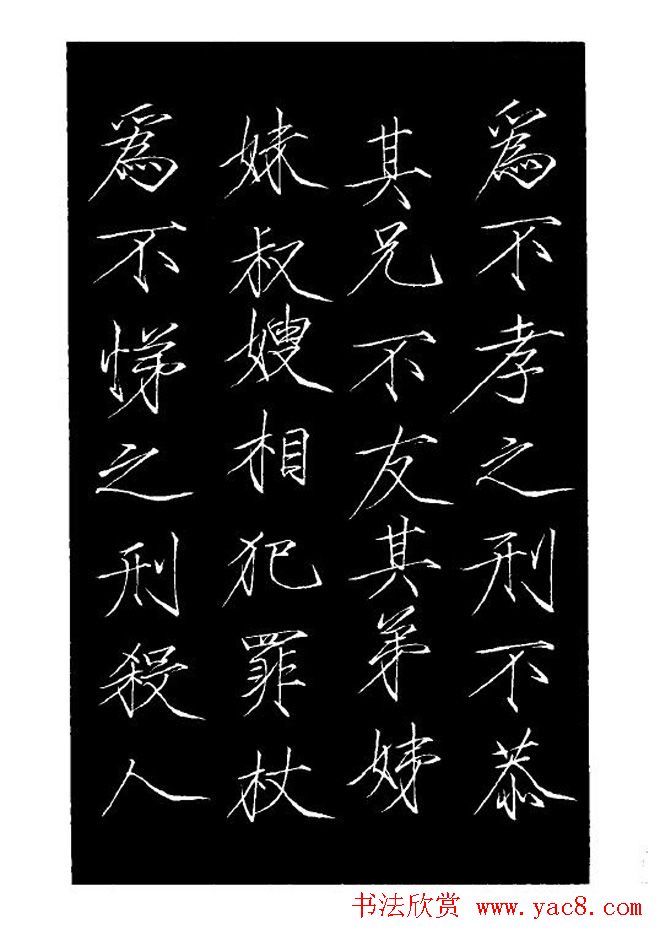 為不孝之刑不恭
其兄不友其弟姊
妹叔嫂相犯罪杖
為不悌之刑殺人
书法欣赏 www.yac8.com